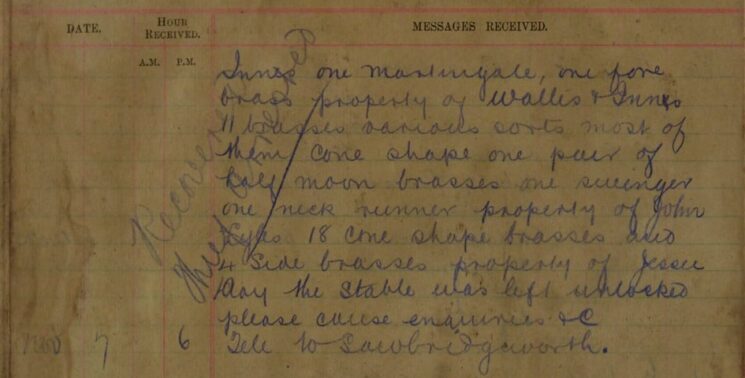 DATE.
HOUR RECEIVED.
MESSAGES RECEIVED.
A.M. P.M.
Innes one martingale, one fore
brass property of Wallis & Innes
11 brasses various sorts most of
them cone shape one pair of
half moon brasses one swinger
one neck runner property of John
18 cone shape brasses and
4 side brasses property of Jesse
the stable was left unlocked
please cause enquiries &c
Nov 7 6 Tele to Sawbridgeworth.